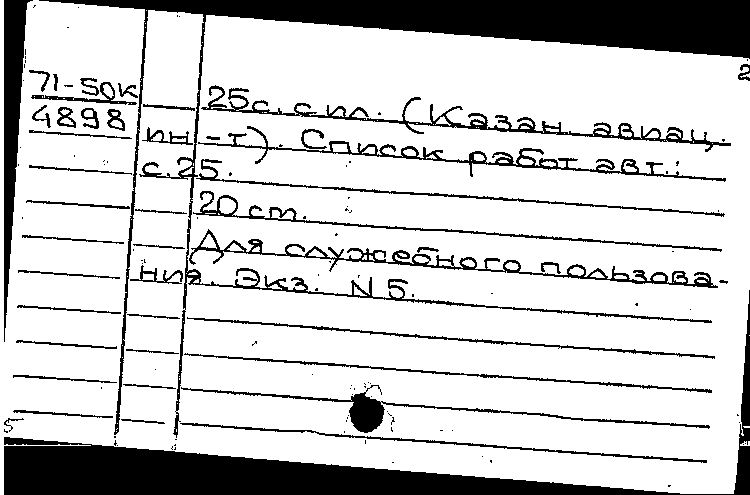 2
71-50к
4898
25с. с ил. (Казан. авиац.
ин-т). Список работ авт.:
с. 25.
20 см.
Для служебного пользова-
ния. Экз. N 5.
5